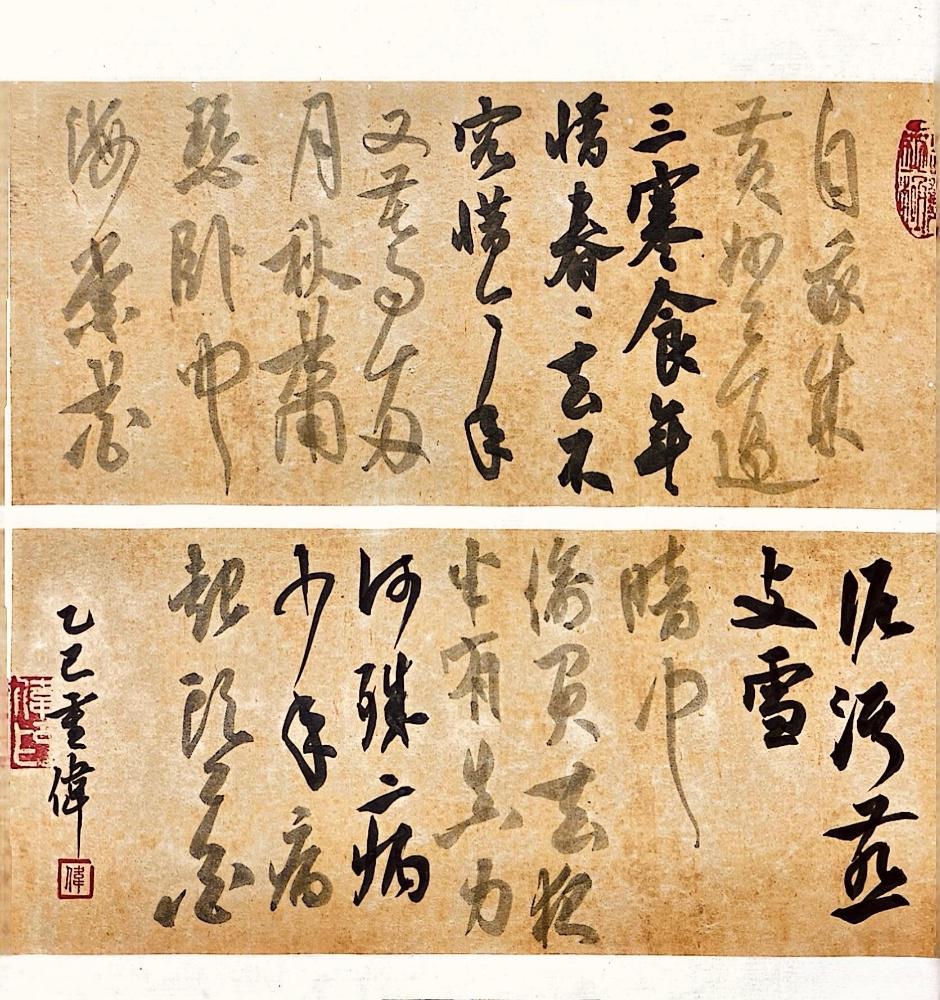 自我來
黃州已過
三寒食年
惜春、去不
容惜今年
又苦雨兩
月秋蕭
瑟臥聞
海棠花
泥污燕
支雪
暗中
偷負去夜
半有真力
何殊二病
少年病
起頭已白
乙巳重偉
偉